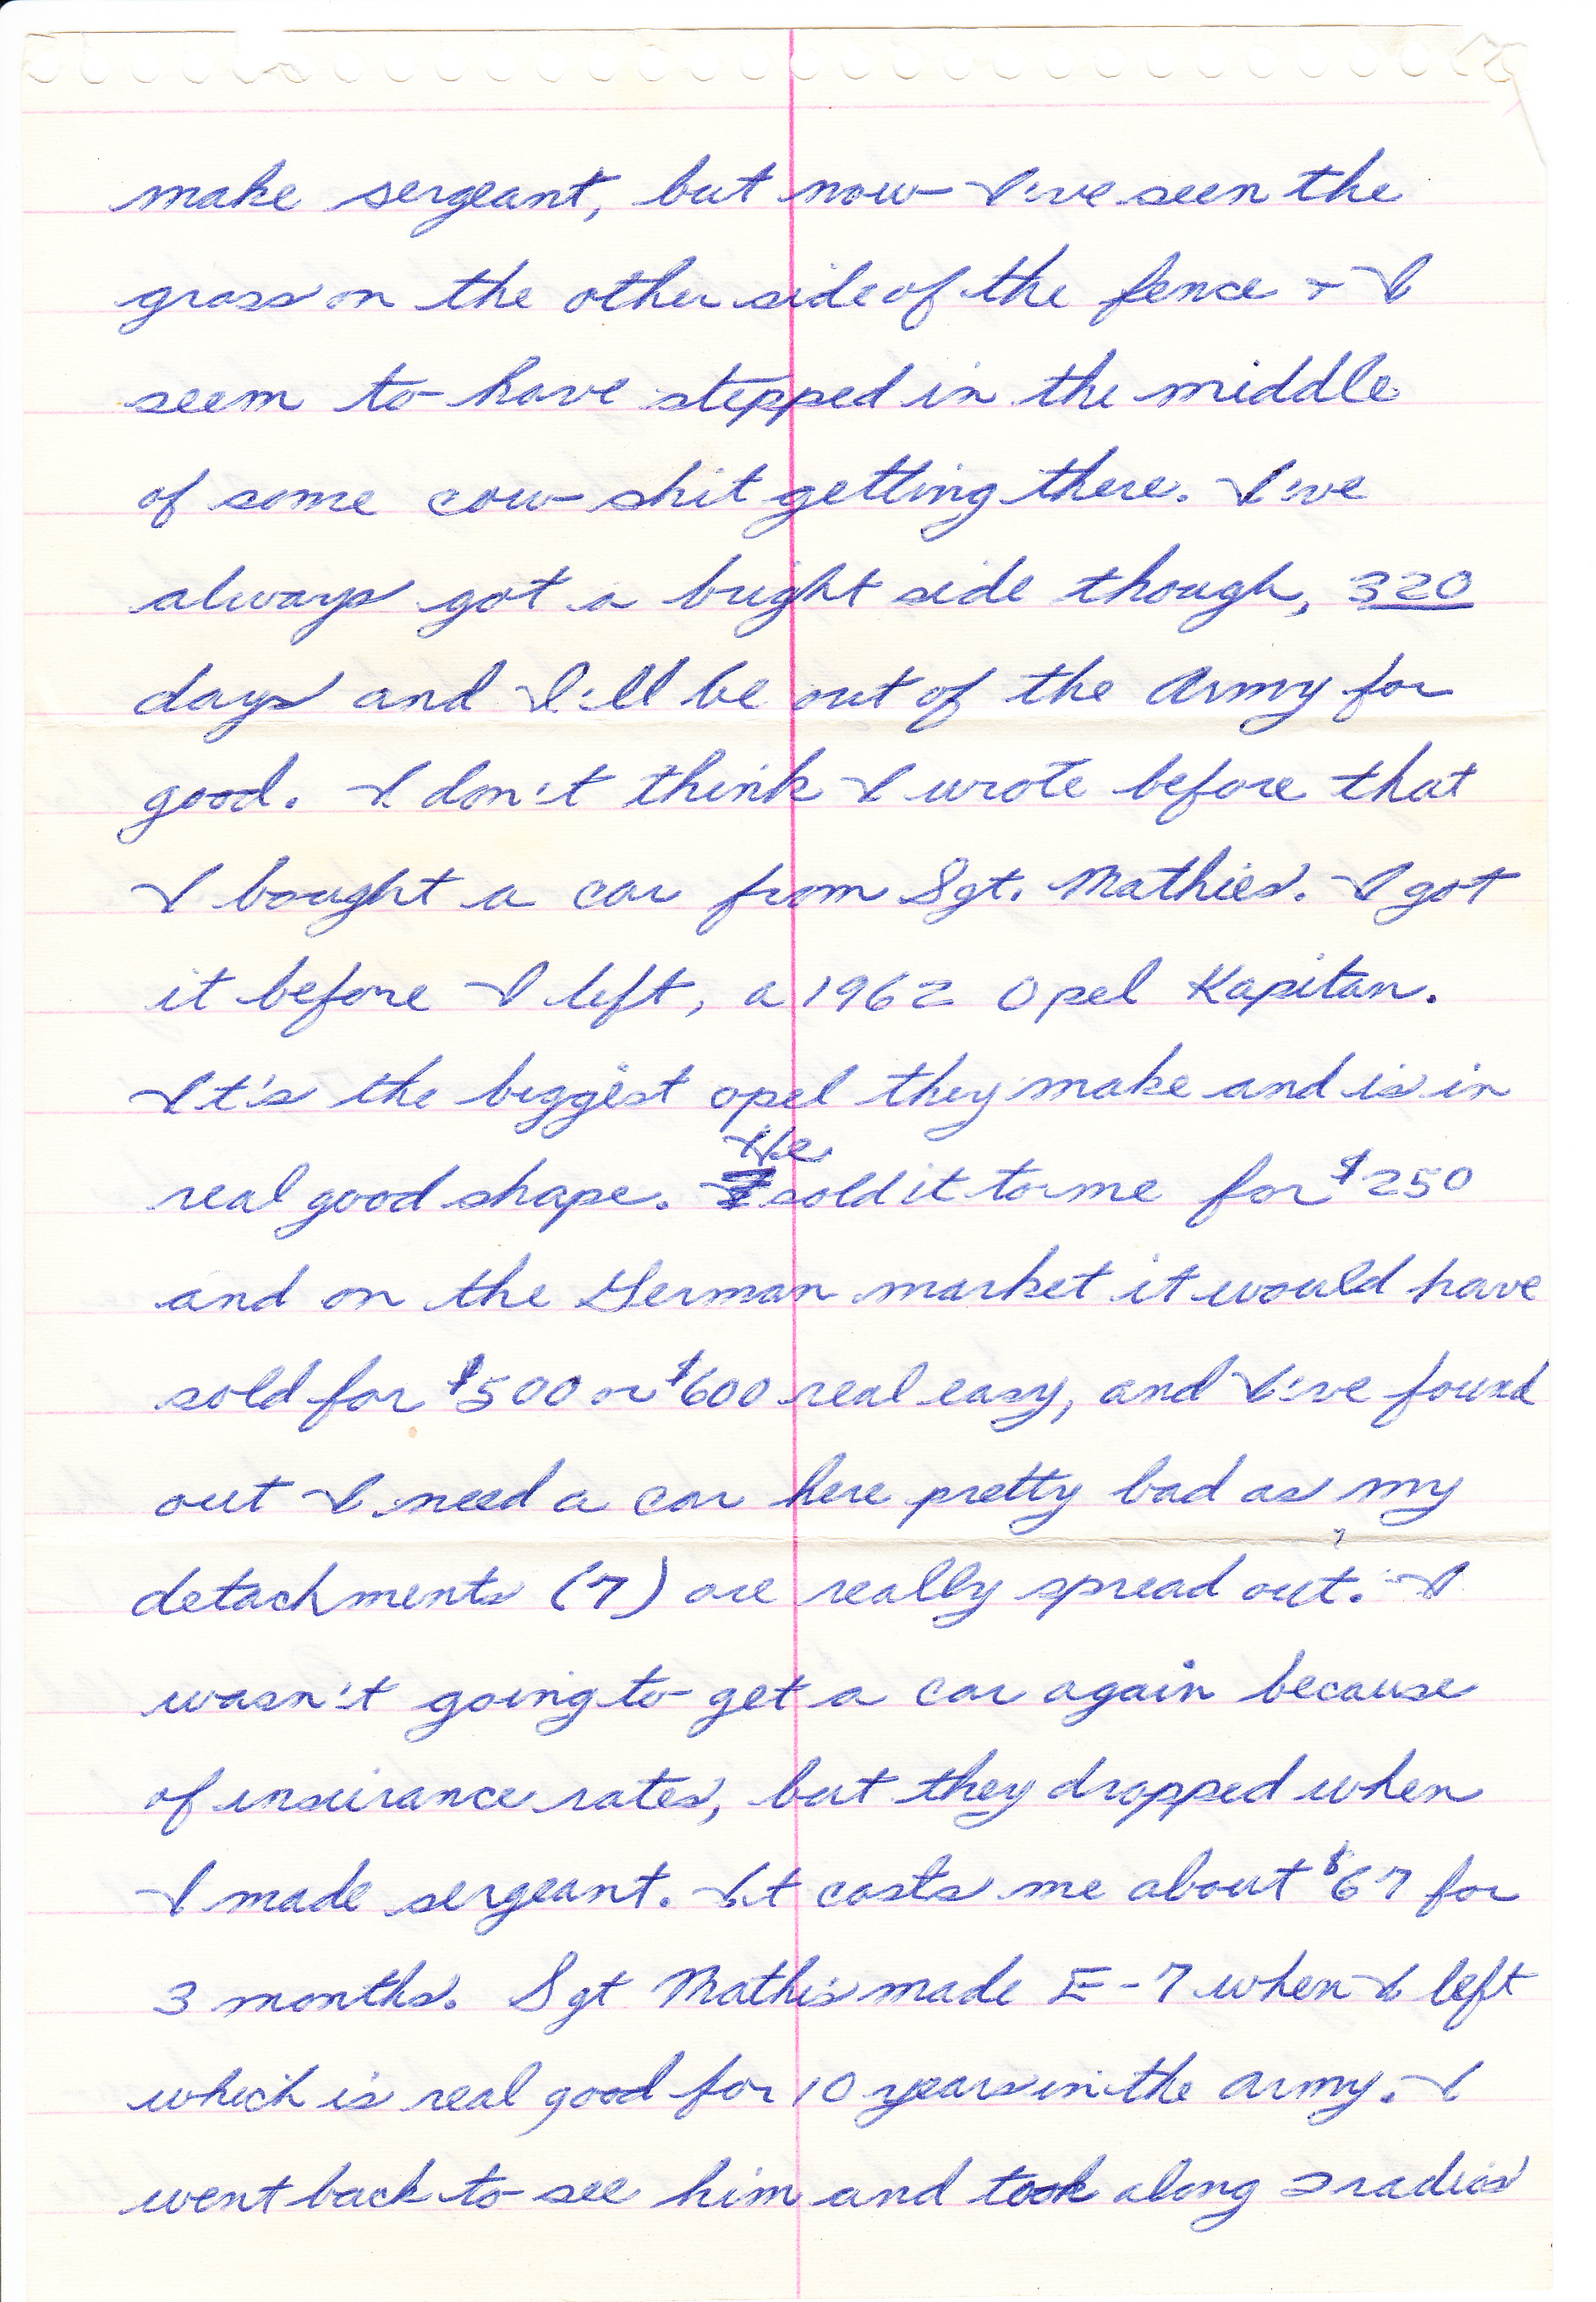 make sergeant, but now I've seen the
grass on the other side of the fence + I
seem to have stepped in the middle
of some cow shit getting there. I've
always got a bright side though, 320
days and I'll be out of the Army for
good. I don't think I wrote before that
I bought a car from Sgt. Mathies. I got
it before I left, a 1962 Opel Kapitan.
It's the biggest opel they make and is in
real good shape. He sold it to me for $250
and on the German market it would have
sold for $500 or $600 real easy, and I've found
out I need a car here pretty bad as my
detachments (7) are really spread out. I
wasn't going to get a car again because
of insurance rates, but they dropped when
I made sergeant. It costs me about $67 for
3 months. Sgt Mathis made E-7 when I left
which is real good for 10 years in the army. I
went back to see him and took along 2 radios